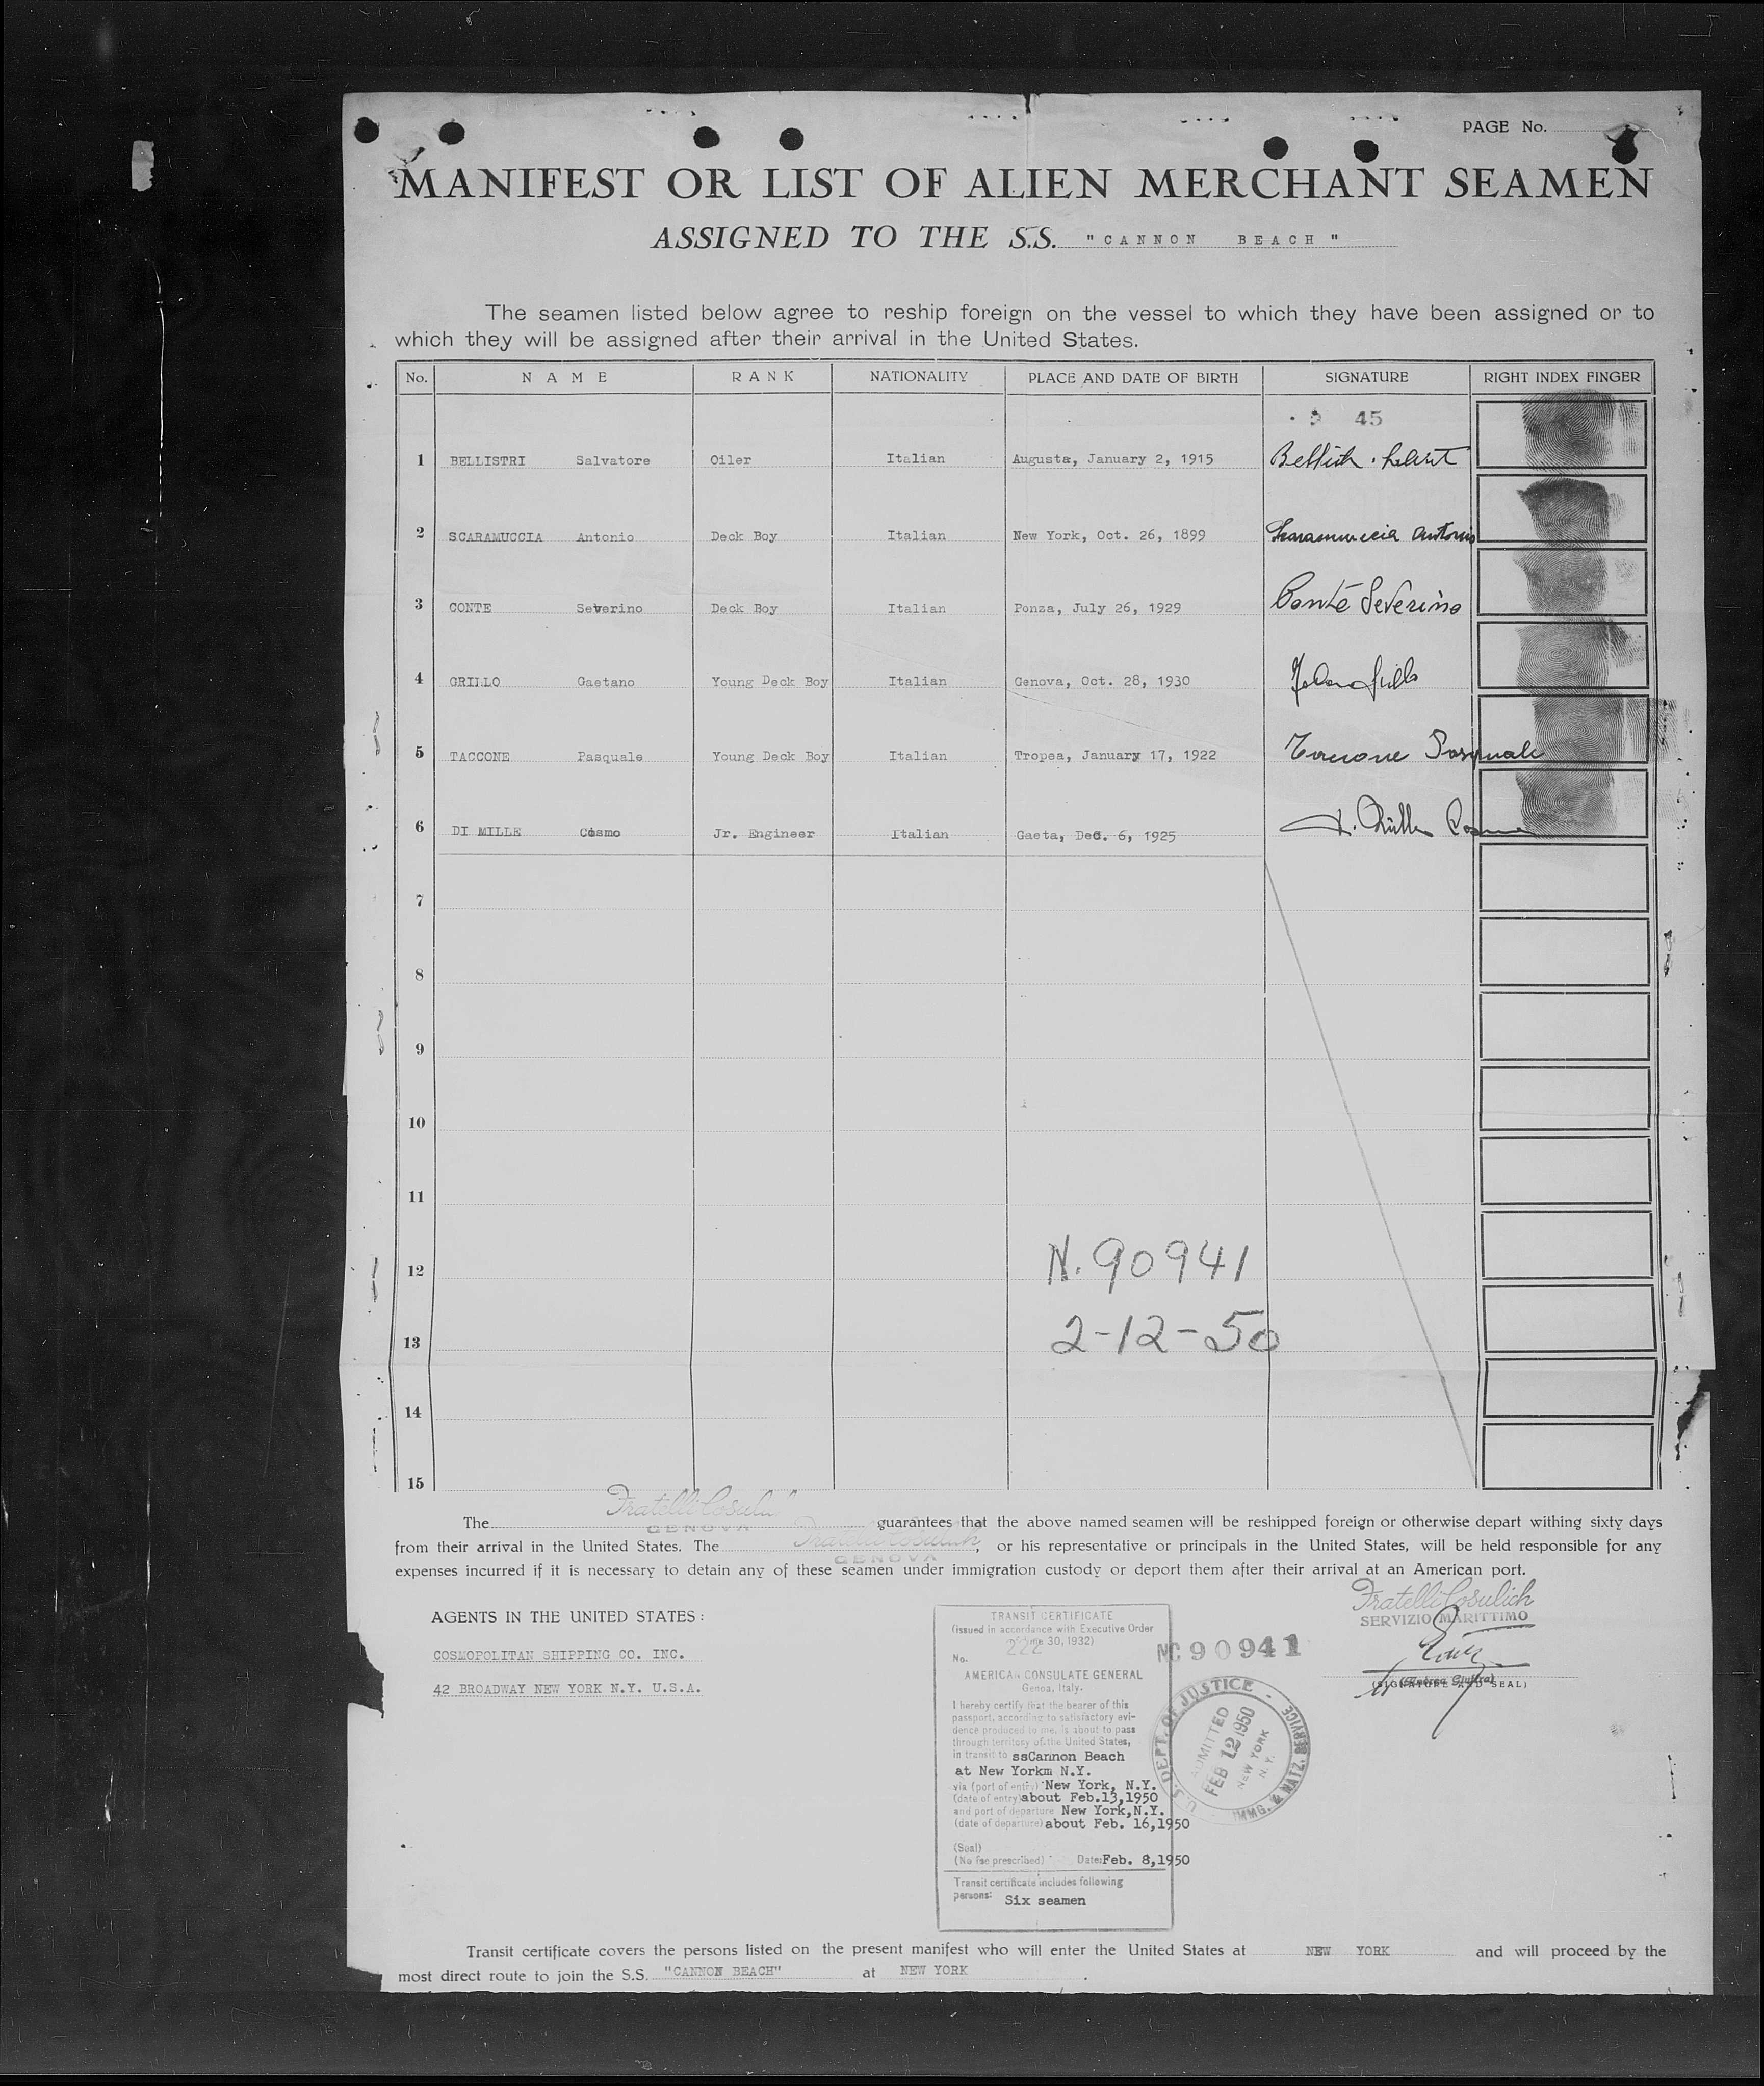 PAGE No.
MANIFEST OR LIST OF ALIEN MERCHANT SEAMEN
ASSIGNED TO THE S.S. "CANNON BEACH"
The seamen listed below agree to reship foreign on the vessel to which they have been assigned or to
which they will be assigned after their arrival in the United States.
No. NAME RANK NATIONALITY PLACE AND DATE OF BIRTH SIGNATURE RIGHT INDEX FINGER
45
1 BELLISTRI Salvatore Oiler Italian Augusta, January 2, 1915
2 SCARAMUCCIA Antonio Deck Boy Italian New York, Oct. 26, 1899 Scaramuccia Antonio
3 CONTE Severino Deck Boy Italian Ponza, July 26, 1929 Conte Severino
4 GRILLO Gaetano Young Deck Boy Italian Genova, Oct. 28, 1930
5 TACCONE Pasquale Young Deck Boy Italian Tropea, January 17, 1922 Taccone Pasquale
6 DI MILLE Cosmo Jr. Engineer Italian Gaeta, Dec. 6, 1925
7
8
9
10
11
12 N. 90941
13 2-12-50
14
15
The Fratelli Cosulich guarantees that the above named seamen will be reshipped foreign or otherwise depart withing sixty days
GENOVA
from their arrival in the United States. The Fratelli Cosulich, or his representative or principals in the United States, will be held responsible for any
GENOVA
expenses incurred if it is necessary to detain any of these seamen under immigration custody or deport them after their arrival at an American port.
AGENTS IN THE UNITED STATES:
COSMOPOLITAN SHIPPING CO. INC.
42 BROADWAY NEW YORK N.Y. U.S.A.
TRANSIT CERTIFICATE
(issued in accordance with Executive Order
June 30, 1932)
No. 222
AMERICAN CONSULATE GENERAL
Genoa, Italy.
I hereby certify that the bearer of this
passport, according to satisfactory evi-
dence produced to me, is about to pass
through territory of the United States,
in transit to ssCannon Beach
at New Yorkm N.Y.
via (port of entry) New York, N.Y.
(date of entry) about Feb.13,1950
and port of departure New York,N.Y.
(date of departure) about Feb. 16,1950
(Seal)
(No fee prescribed) Date: Feb. 8,1950
Transit certificate includes following
persons: Six seamen
90941
U.S. DEPT. OF JUSTICE - IMMG. & NATZ. SERVICE
ADMITTED
FEB 12 1950
NEW YORK
N.Y.
Fratelli Cosulich
SERVIZIO MARITTIMO
(SIGNATURE AND SEAL)
Transit certificate covers the persons listed on the present manifest who will enter the United States at NEW YORK and will proceed by the
most direct route to join the S.S. "CANNON BEACH" at NEW YORK